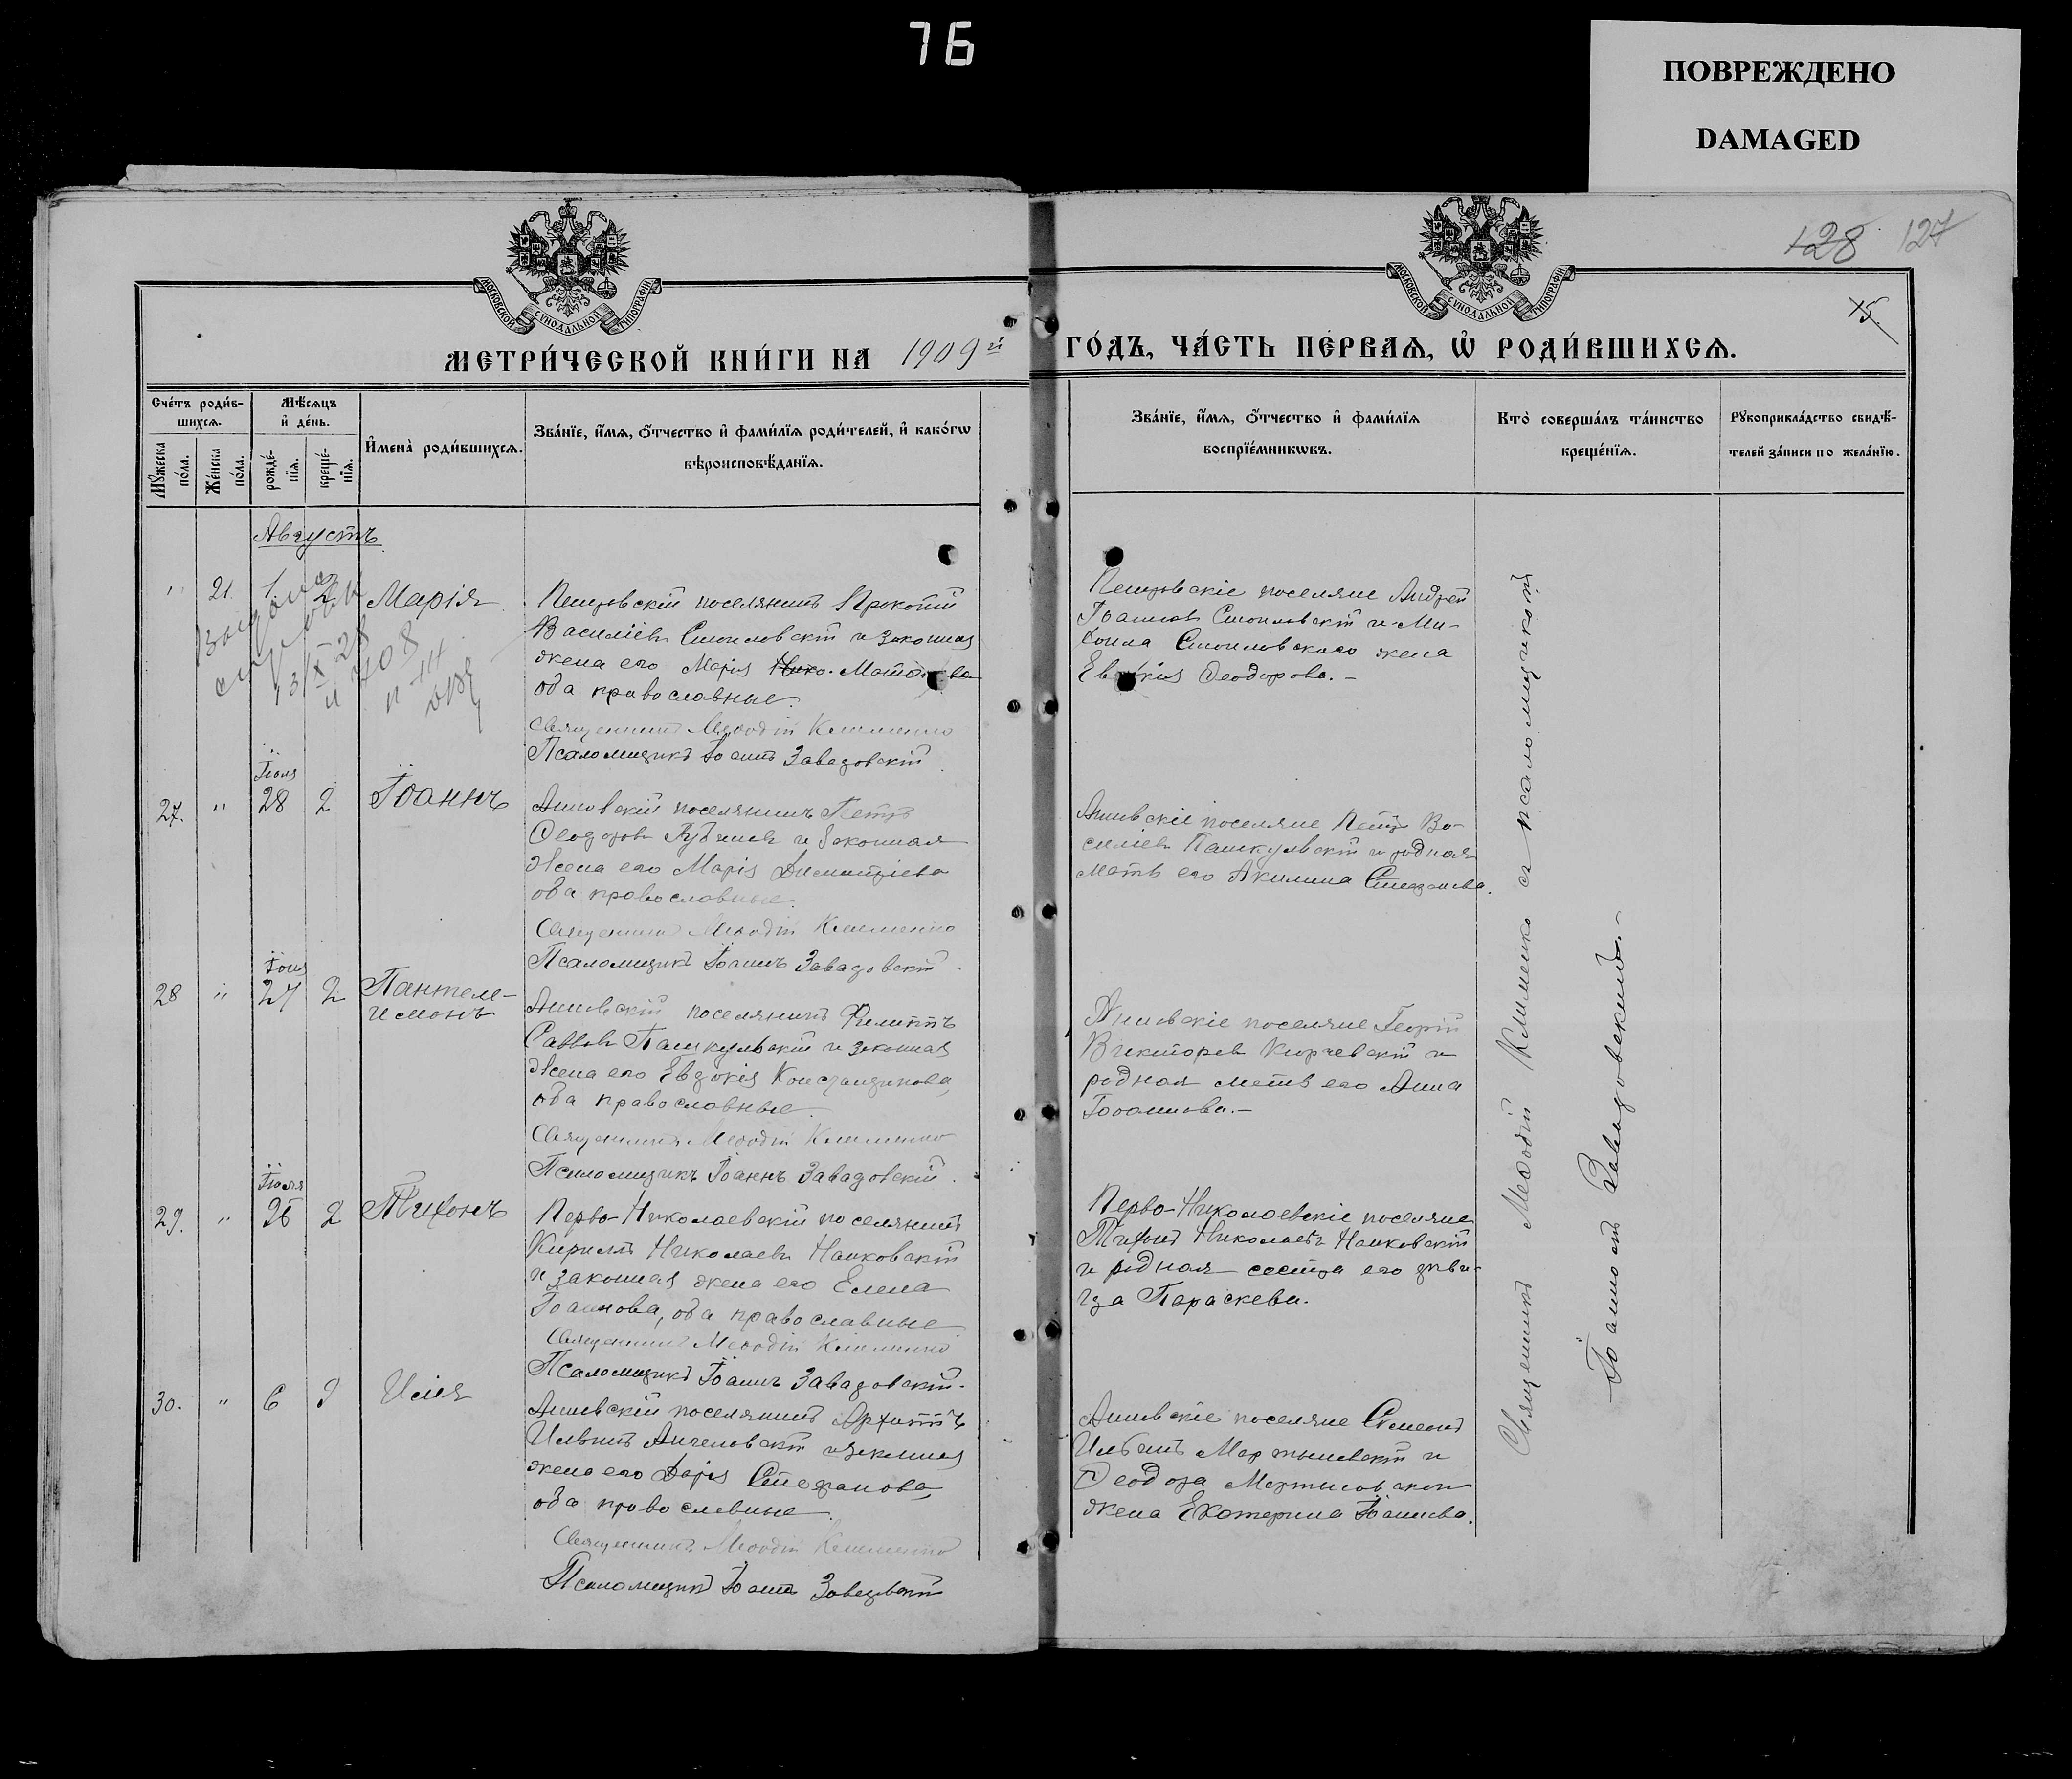 76
ПОВРЕЖДЕНО
DAMAGED
128 127
15.
МОСКОВСКОЙ СѴНОДАЛЬНОЙ ТИПОГРАФІИ
МОСКОВСКОЙ СѴНОДАЛЬНОЙ ТИПОГРАФІИ
МЕТРИ́ЧЕСКОЙ КНИ́ГИ НА 1909 й
ГО́ДЪ, ЧА́СТЬ ПЕ́РВАѦ, Ѡ҆ РОДИ́ВШИХСѦ.
Сче́тъ роди́в-
шихсѧ.
Мꙋ́жеска
по́ла.
Же́нска
по́ла.
Мѣ́сѧцъ
и҆ де́нь.
рожде́-
нїѧ.
креще́-
нїѧ.
И҆мена̀ роди́вшихсѧ.
Зва́нїе, и҆́мѧ, ѻ҆́тчество и҆ фами́лїѧ роди́телей, и҆ како́гѡ
вѣроисповѣ́данїѧ.
Зва́нїе, и҆́мѧ, ѻ҆́тчество и҆ фами́лїѧ
воспрїе́мникѡвъ.
Кто̀ соверша́лъ та́инство
креще́нїѧ.
Рꙋкоприкла́дство свидѣ́-
телей за́писи по жела́нїю.
Августъ
" 21 1. 2 Марія
Петровскій поселянинъ Прокопій
Василіевъ Стоиловскій и законная
жена его Марія
оба православные.
Священникъ Меѳодій Клименко
Псаломщикъ Іоаннъ Завадовскій
Петровскіе поселяне Андрей
Іоанновъ Стоиловскій и Ми-
хаила Стоиловскаго жена
Евдокія Ѳеодорова.-
Іюля
27. " 28 2 Іоаннъ
Анновскій поселянинъ Петръ
Ѳеодоровъ и законная
жена его Марія Димитріева
оба православные.
Священникъ Меѳодій Клименко
Псаломщикъ Іоаннъ Завадовскій.
Анновскіе поселяне Петръ Ва-
силіевъ Пашкульскій и родная
мать его Акилина Стефанова.
Іюля
28 " 27 2 Пантеле-
имонъ
Анновскій поселянинъ Филиппъ
Саввовъ Пашкульскій и законная
жена его Евдокія Константинова,
оба православные.
Священникъ Меѳодій Клименко
Псаломщикъ Іоаннъ Завадовскій.
Анновскіе поселяне Георгій
Викторовъ Кюрчевскій и
родная мать его Анна
Іоаннова.-
Іюля
29. " 26 2 Тихонъ
Перво-Николаевскій поселянинъ
Кириллъ Николаевъ Наиковскій
и законная жена его Елена
Іоаннова, оба православные
Священникъ Меѳодій Клименко
Псаломщикъ Іоаннъ Завадовскій.
Перво-Николаевскіе поселяне
Тихонъ Николаевъ Наиковскій
и родная сестра его дѣви-
ца Параскева.
30. " 6 9 Илія
Анновскій поселянинъ Архиппъ
Ильинъ Ангеловскій и законная
жена его Дарія Стефанова,
оба православные.
Священникъ Меѳодій Клименко
Псаломщикъ Іоаннъ Завадовскій
Анновскіе поселяне Симеонъ
Ильинъ Мартыновскій и
Ѳеодора Мартыновскаго
жена Екатерина Іоаннова.
Священникъ Меѳодій Клименко съ псаломщикомъ
Іоанномъ Завадовскимъ.-